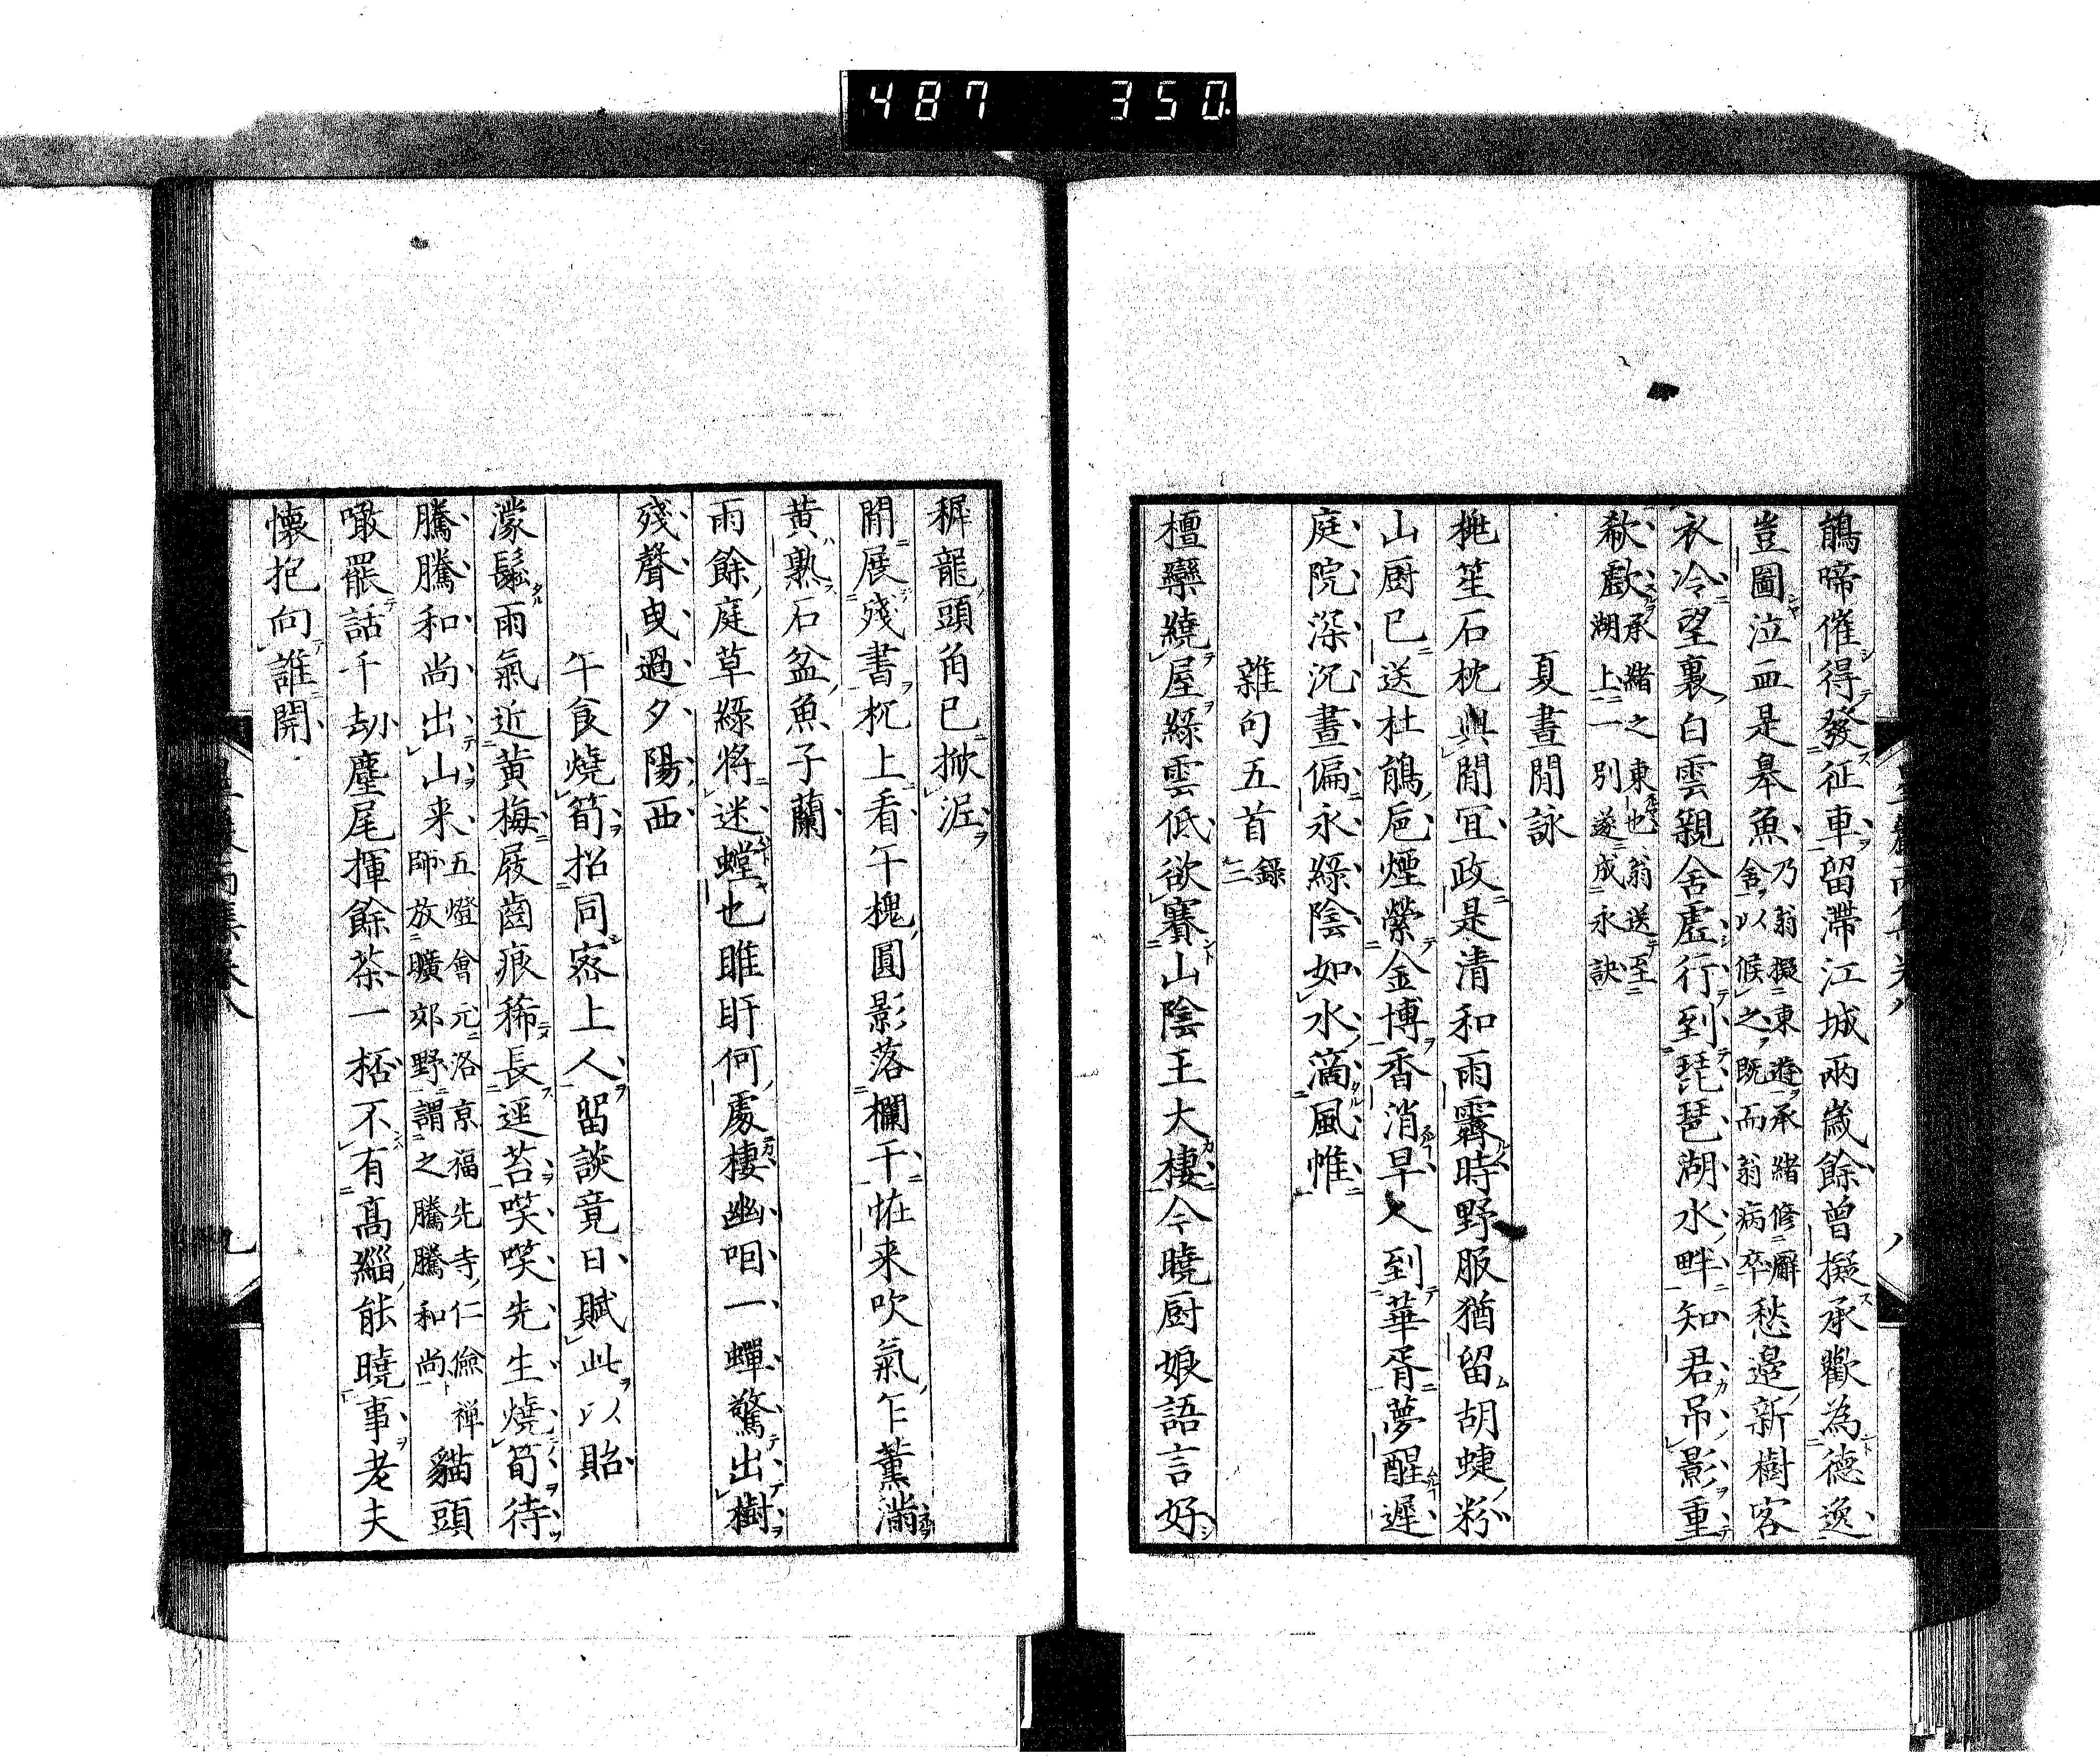 487 350
鵑啼催得發征車留滯江城兩歲餘曾擬承歡為德逸
豈圖泣血是皋魚
乃翁擬東遊承緒修廨
舍以候之既而翁病卒
愁邊新樹客
衣冷望裏白雲親舍虛行到琵琶湖水畔知君吊影重
欷歔
承緒之東也翁送至
湖上一別遂成永訣
夏晝閒詠
桃笙石枕與閒宜政是清和雨霽時野服猶留胡蜨粉
山厨已送杜鵑卮煙縈金博香消早人到華胥夢醒遲
庭院深沉晝偏永綠陰如水滴風帷
雜句五首
錄
二
檀欒繞屋綠雲低欲賽山陰王大棲今曉厨娘語言好
穉龍頭角已掀泥
閒展殘書枕上看午槐圓影落欄干恠来吹氣乍薰滿
黄熟石盆魚子蘭
雨餘庭草綠將迷螳也睢盱何處棲幽咽一蟬驚出樹
殘聲曳過夕陽西
午食燒筍招同密上人留談竟日賦此以貽
濛鬆雨氣近黄梅屐齒痕稀長逕苔笑笑先生燒筍待
騰騰和尚出山来
五燈會元洛京福先寺仁儉禅
師放曠郊野謂之騰騰和尚
貓頭
噉罷話千劫麈尾揮餘茶一桮不有髙緇能曉事老夫
懐抱向誰開